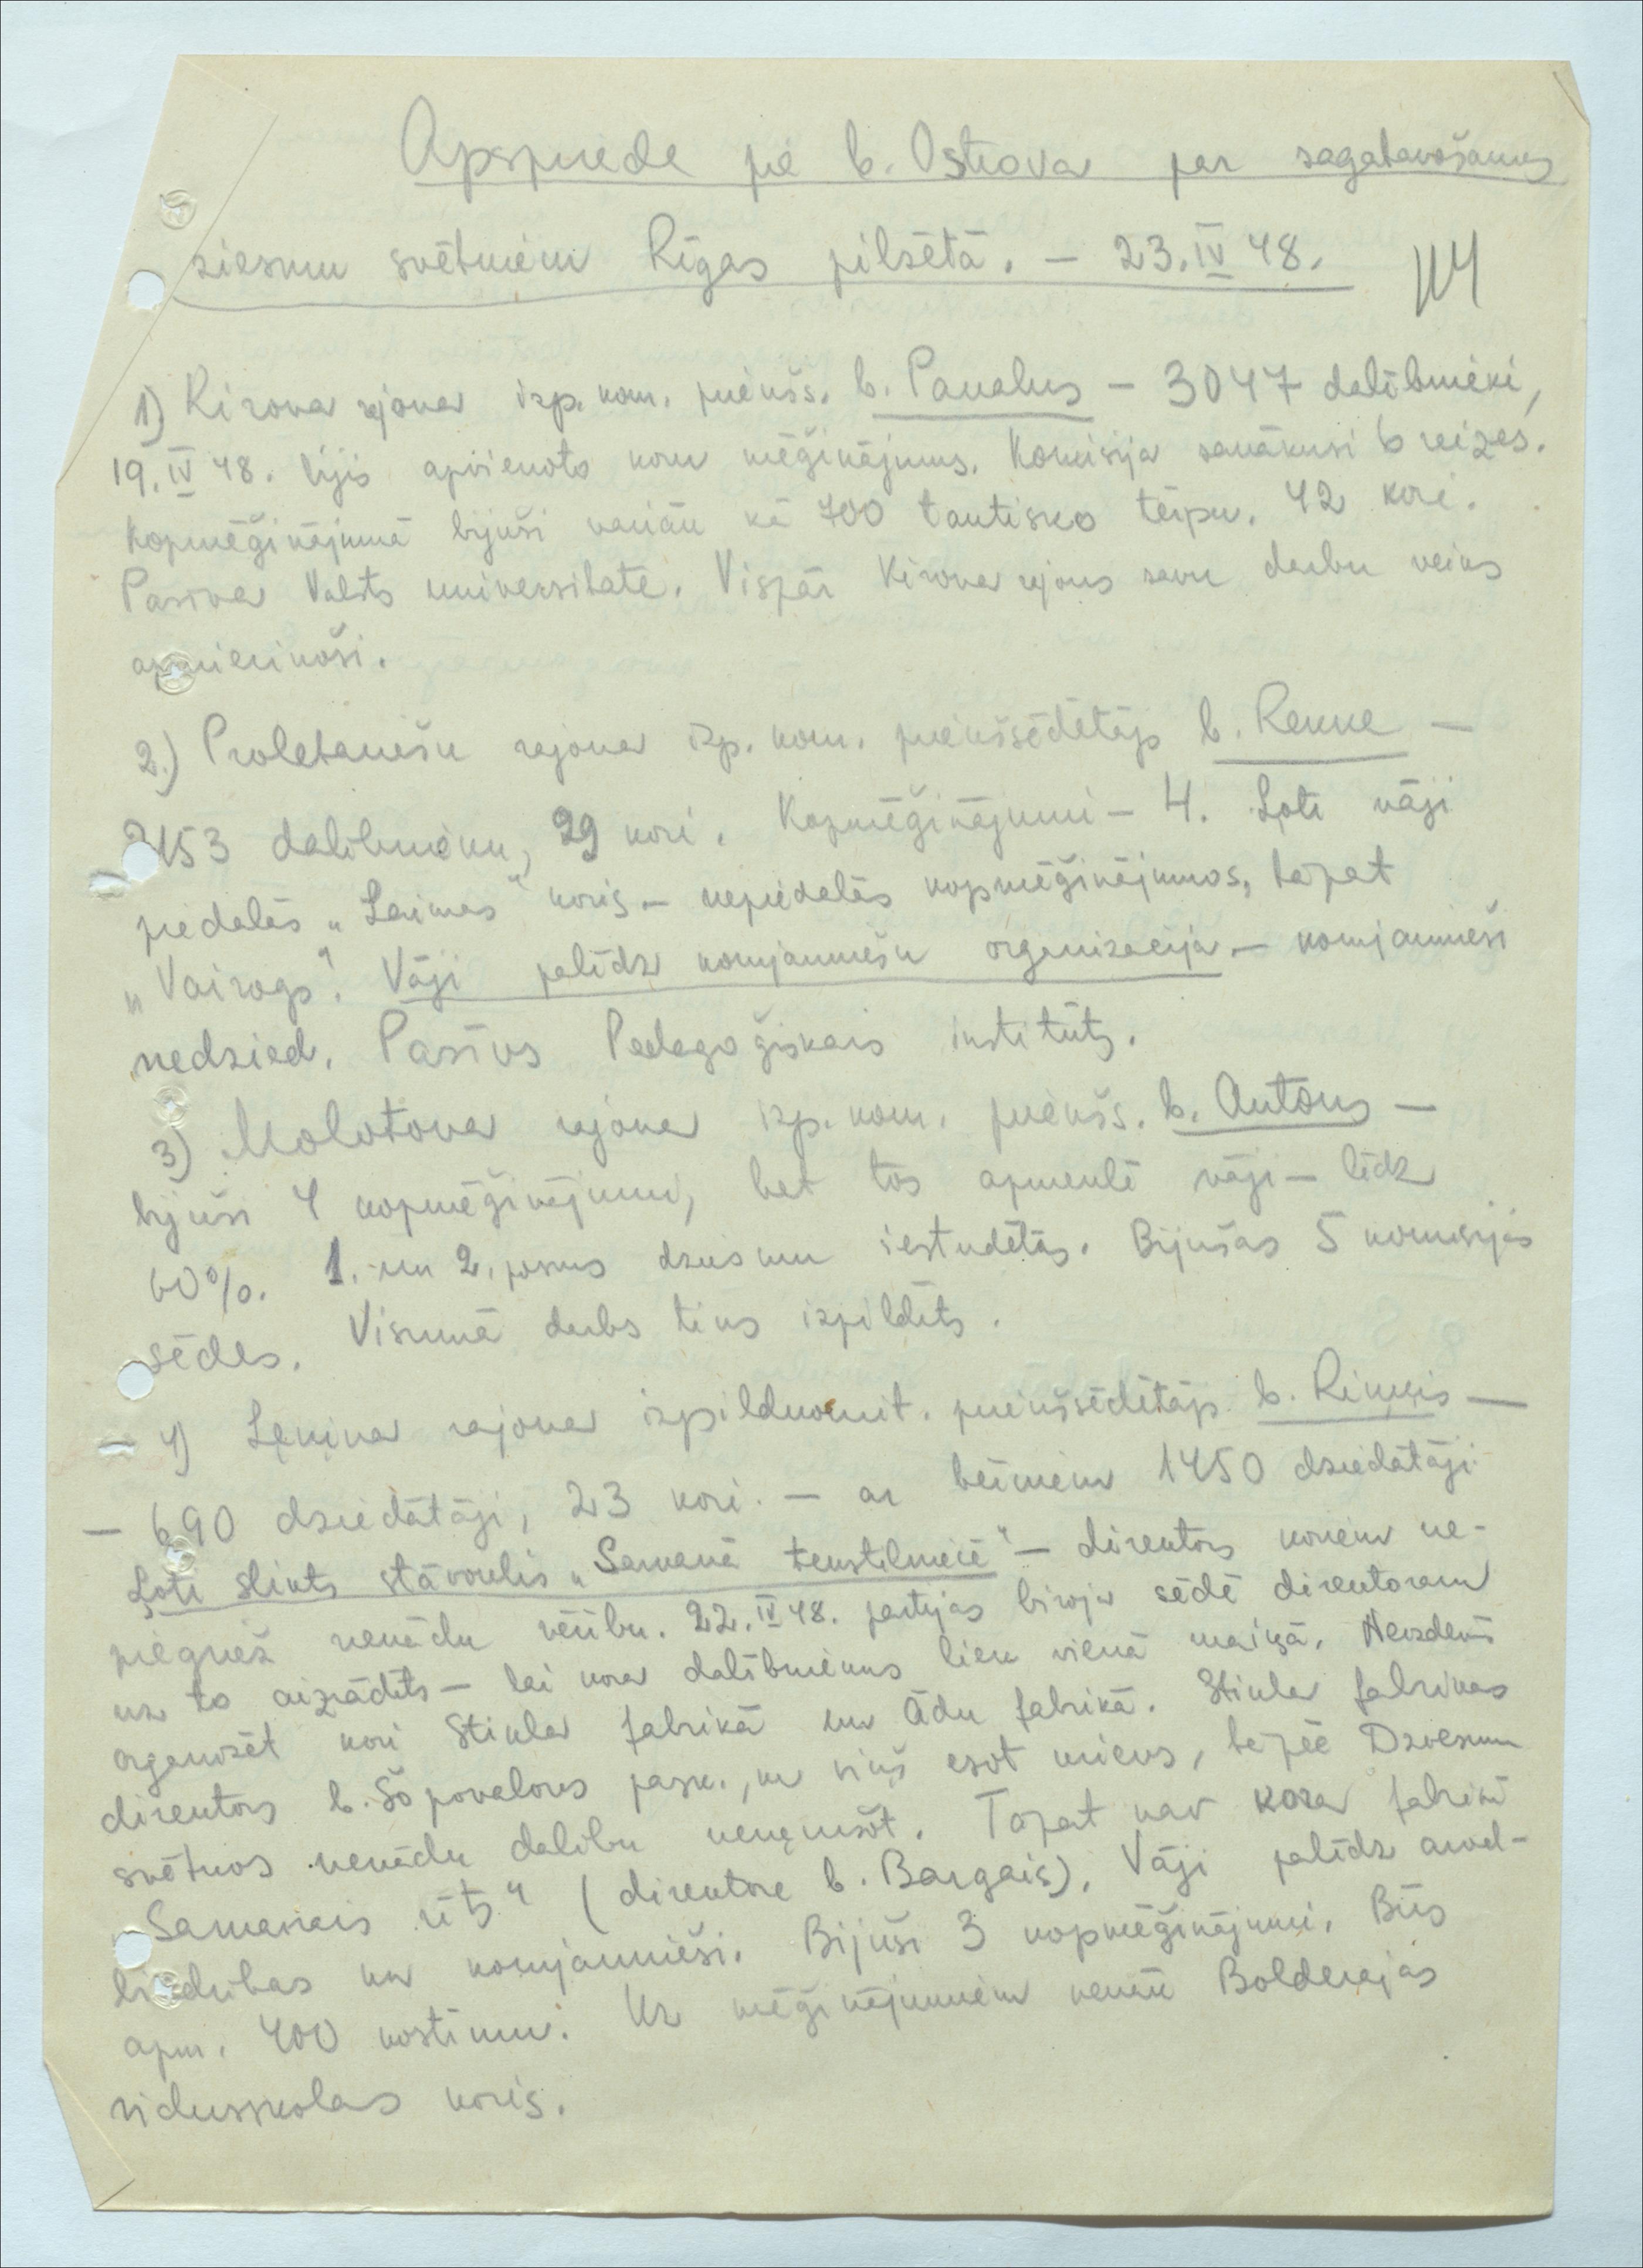 Apspriede pie b. Ostrova par sagatavošanos
dziesmu svētkiem Rīgas pilsētā. – 23.IV 48.
114
1) Kirova rajona izp. kom. priekšs. b. Panalus – 3047 dalībnieki,
19.IV 48. bijis apvienots koru mēģinājums. Komisija sanākusi 6 reizes.
Kopmēģinājumā bijuši vairāk kā 700 tautisko tērpu. 42 kori.
Pasīva Valsts universitāte. Vispār Kirova rajons savu darbu veicis
apmierinoši.
2.) Proletariešu rajona izp. kom. priekšsēdētājs b. Renke –
2453 dalībnieku, 29 kori. Kopmēģinājumi – 4. Ļoti vāji
piedalās „Laimas" koris – nepiedalās kopmēģinājumos, tāpat
„Vairogs". Vāji palīdz komjauniešu organizācija. – komjaunieši
nedzied. Pasīvs Pedagoģiskais institūts.
3) Molotova rajona izp. kom. priekšs. b. Antons –
bijuši 4 kopmēģinājumi, bet tos apmeklē vāji – līdz
60%. 1. un 2. posms dziesmu iestudētas. Bijušas 5 komisijas
sēdes. Visumā darbs tiks izpildīts.
– 4) Ļeņina rajona izpildkomit. priekšsēdētājs b. Rinkis –
– 690 dziedātāji, 23 kori. – ar bērniem 1450 dziedātāji
Ļoti slikts stāvoklis „Sarkanā tekstilniecē" – direktors koriem ne-
piegriež nekādu vērību. 22.IV 48. partijas biroja sēdē direktoram
uz to aizrādīts – lai kora dalībniekus liek vienā maiņā. Neizdevās
organizēt kori Stikla fabrikā un Ādu fabrikā. Stikla fabrikas
direktors b. Šapovalovs pask., ka viņš esot krievs, tāpēc Dziesmu
svētkos nekādu dalību neņemšot. Tāpat nav kora fabrikā
„Sarkanais rīts" (direktore b. Bargais). Vāji palīdz arod-
biedrības un komjaunieši. Bijuši 3 kopmēģinājumi. Būs
apm. 400 kostīmu. Uz mēģinājumiem nenāk Bolderajas
vidusskolas koris.